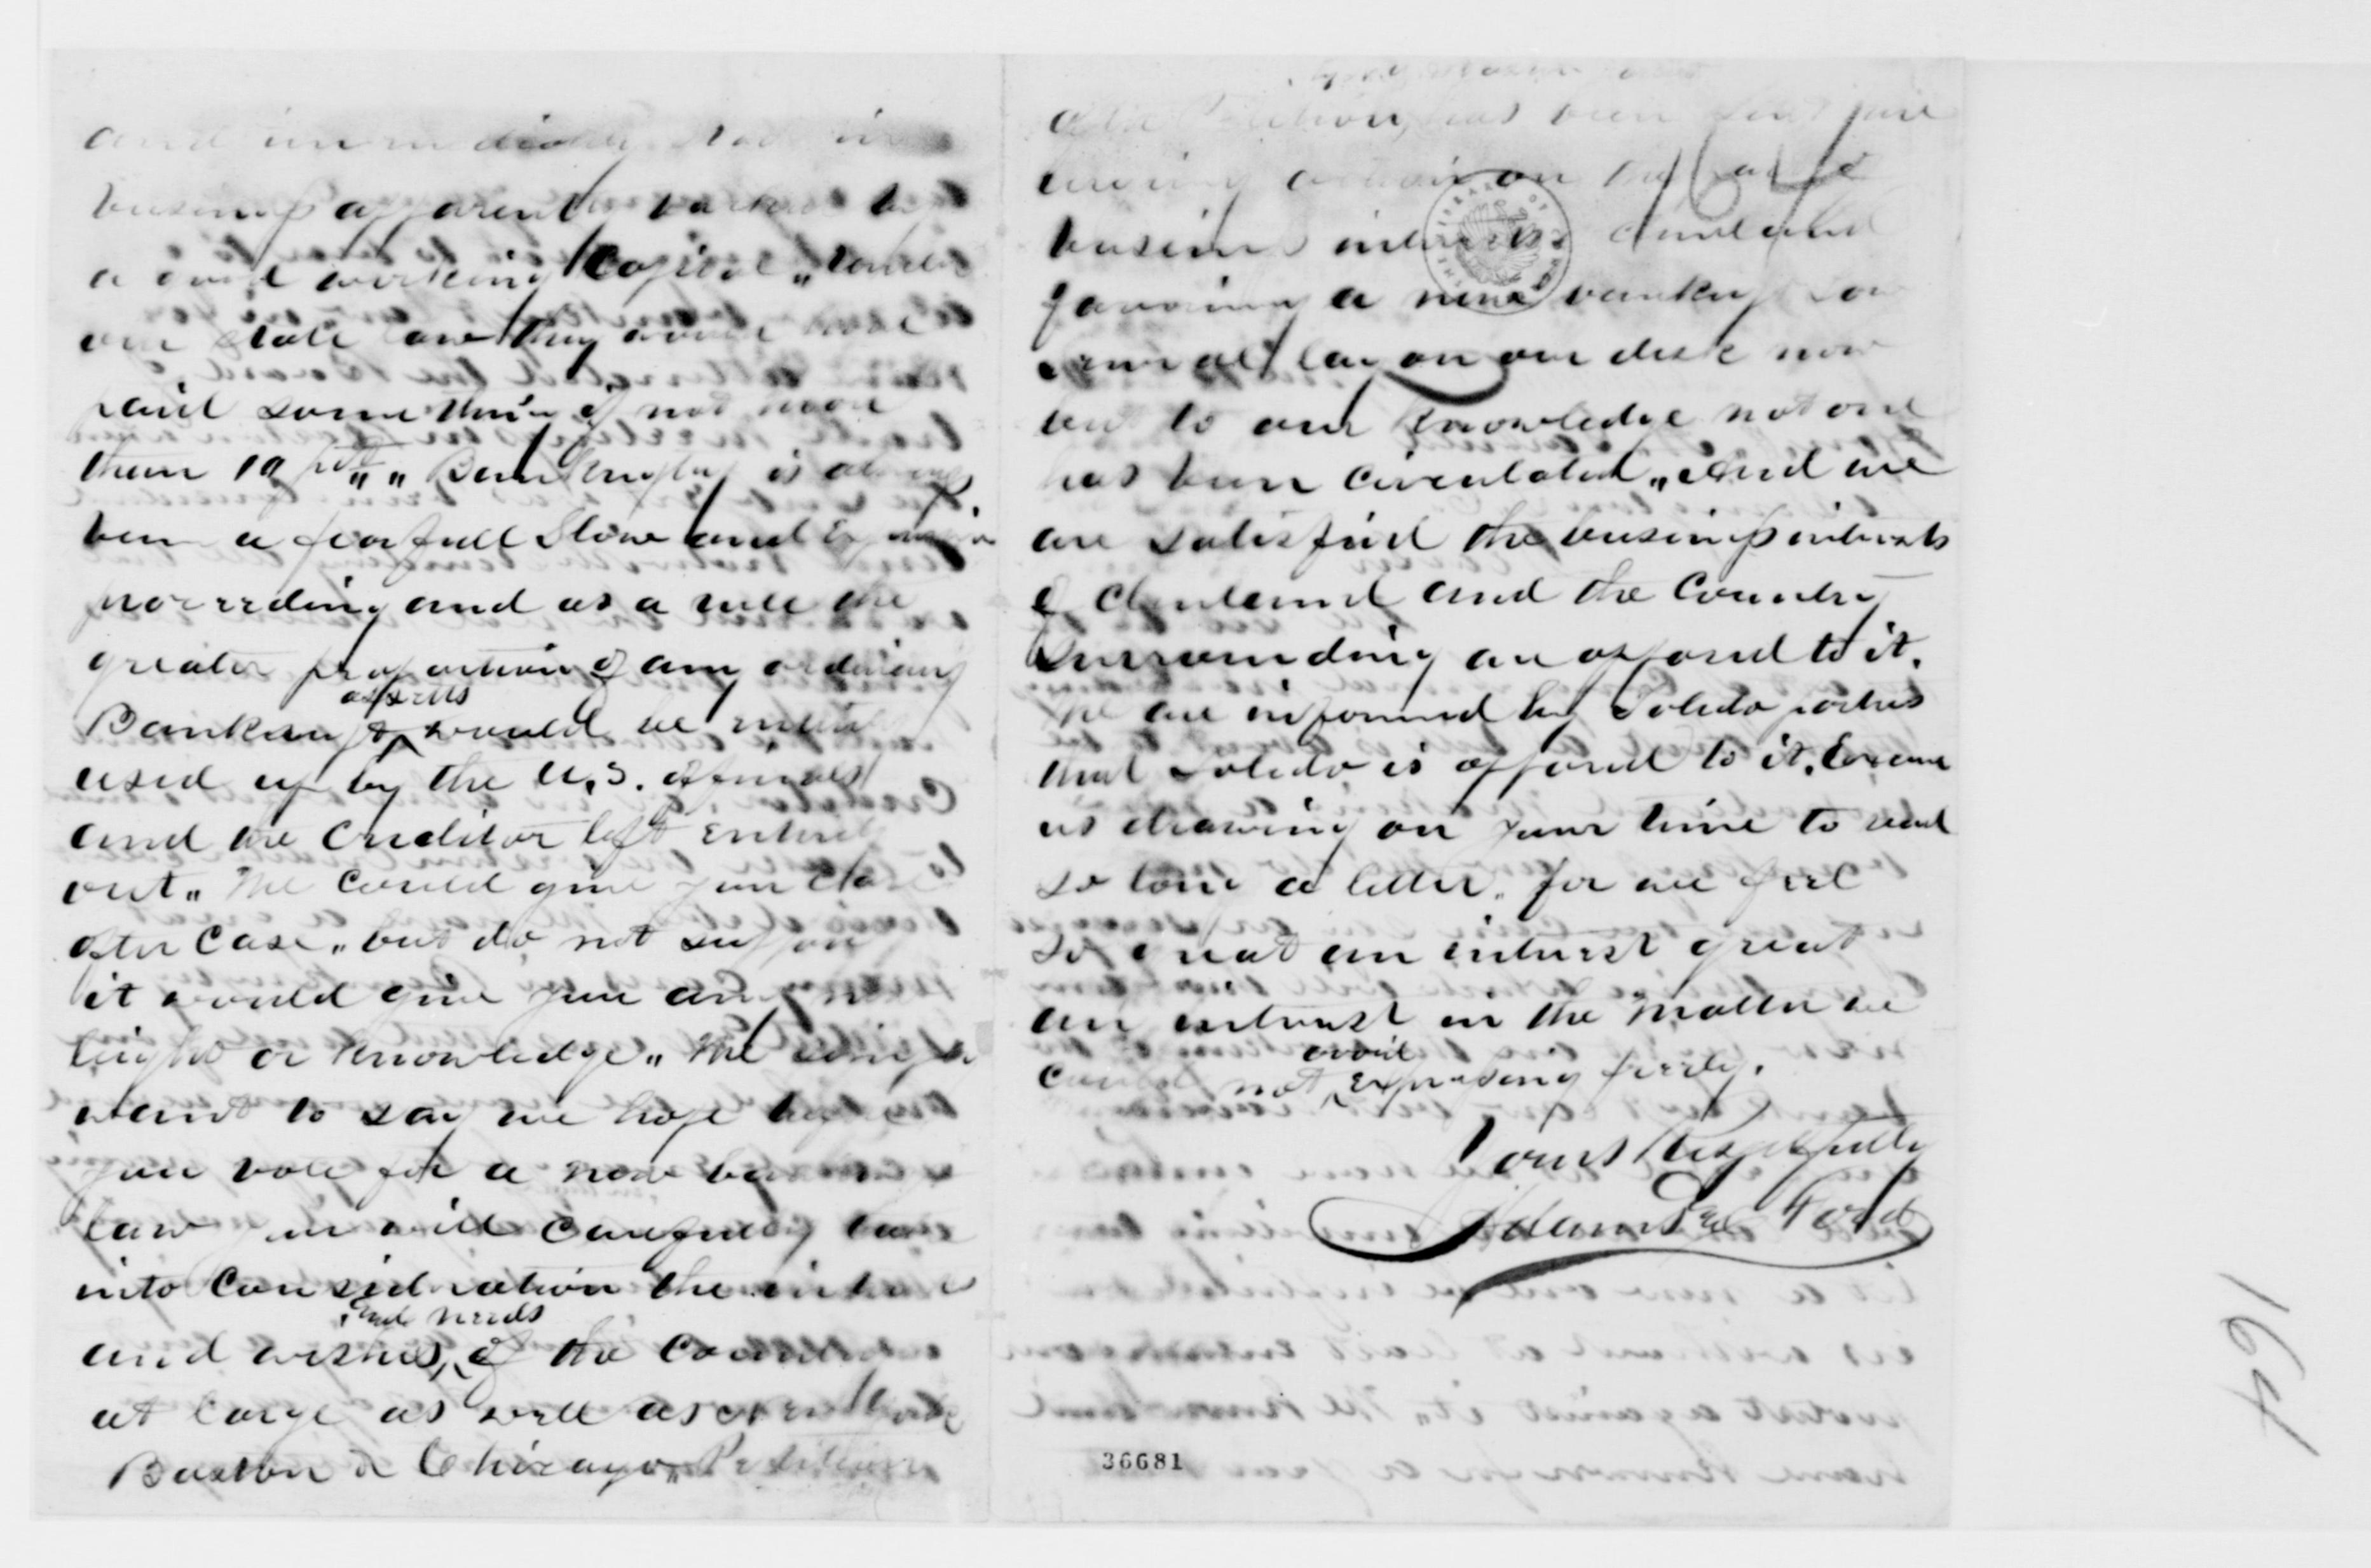 and immediately
business apparently backed by
a good working Capital „ Under
our state law they would have
paid something if not more
than 10 pct „ „ Bankruptcy is always
been a fearfull Slow and Expensive
proceeding and as a rule the
greater proportion of any ordinary
Bankrupts assetts would be
used up by the U.S. officials
and the Creditor left Entirely
out „ We Could give you Case
after Case „ but do not suppose
it would give you any new
light or Knowledge „ We simply
want to say we hope before
you vote for a new bankrupt
law you will Carefully take
into Consideration the interests
and wishes, and needs of the Country
at large as well as
Boston & Chicago „ Petition
after Petition, has been sent
urging action on the part of
business interests Cleveland
favoring a new bankrupt law
Several lay on our desk now
but to our Knowledge not one
has been Circulated „ And we
are satisfied the business interests
of Cleveland and the Country
Surrounding are opposed to it.
We are informed by Toledo parties
that Toledo is opposed to it. Excuse
us drawing on your time to read
so long a letter. for we feel
so great an interest great
an interest in the matter we
Could not avoid Expressing freely.
Yours Respectfully
Adams & Ford
36681
164